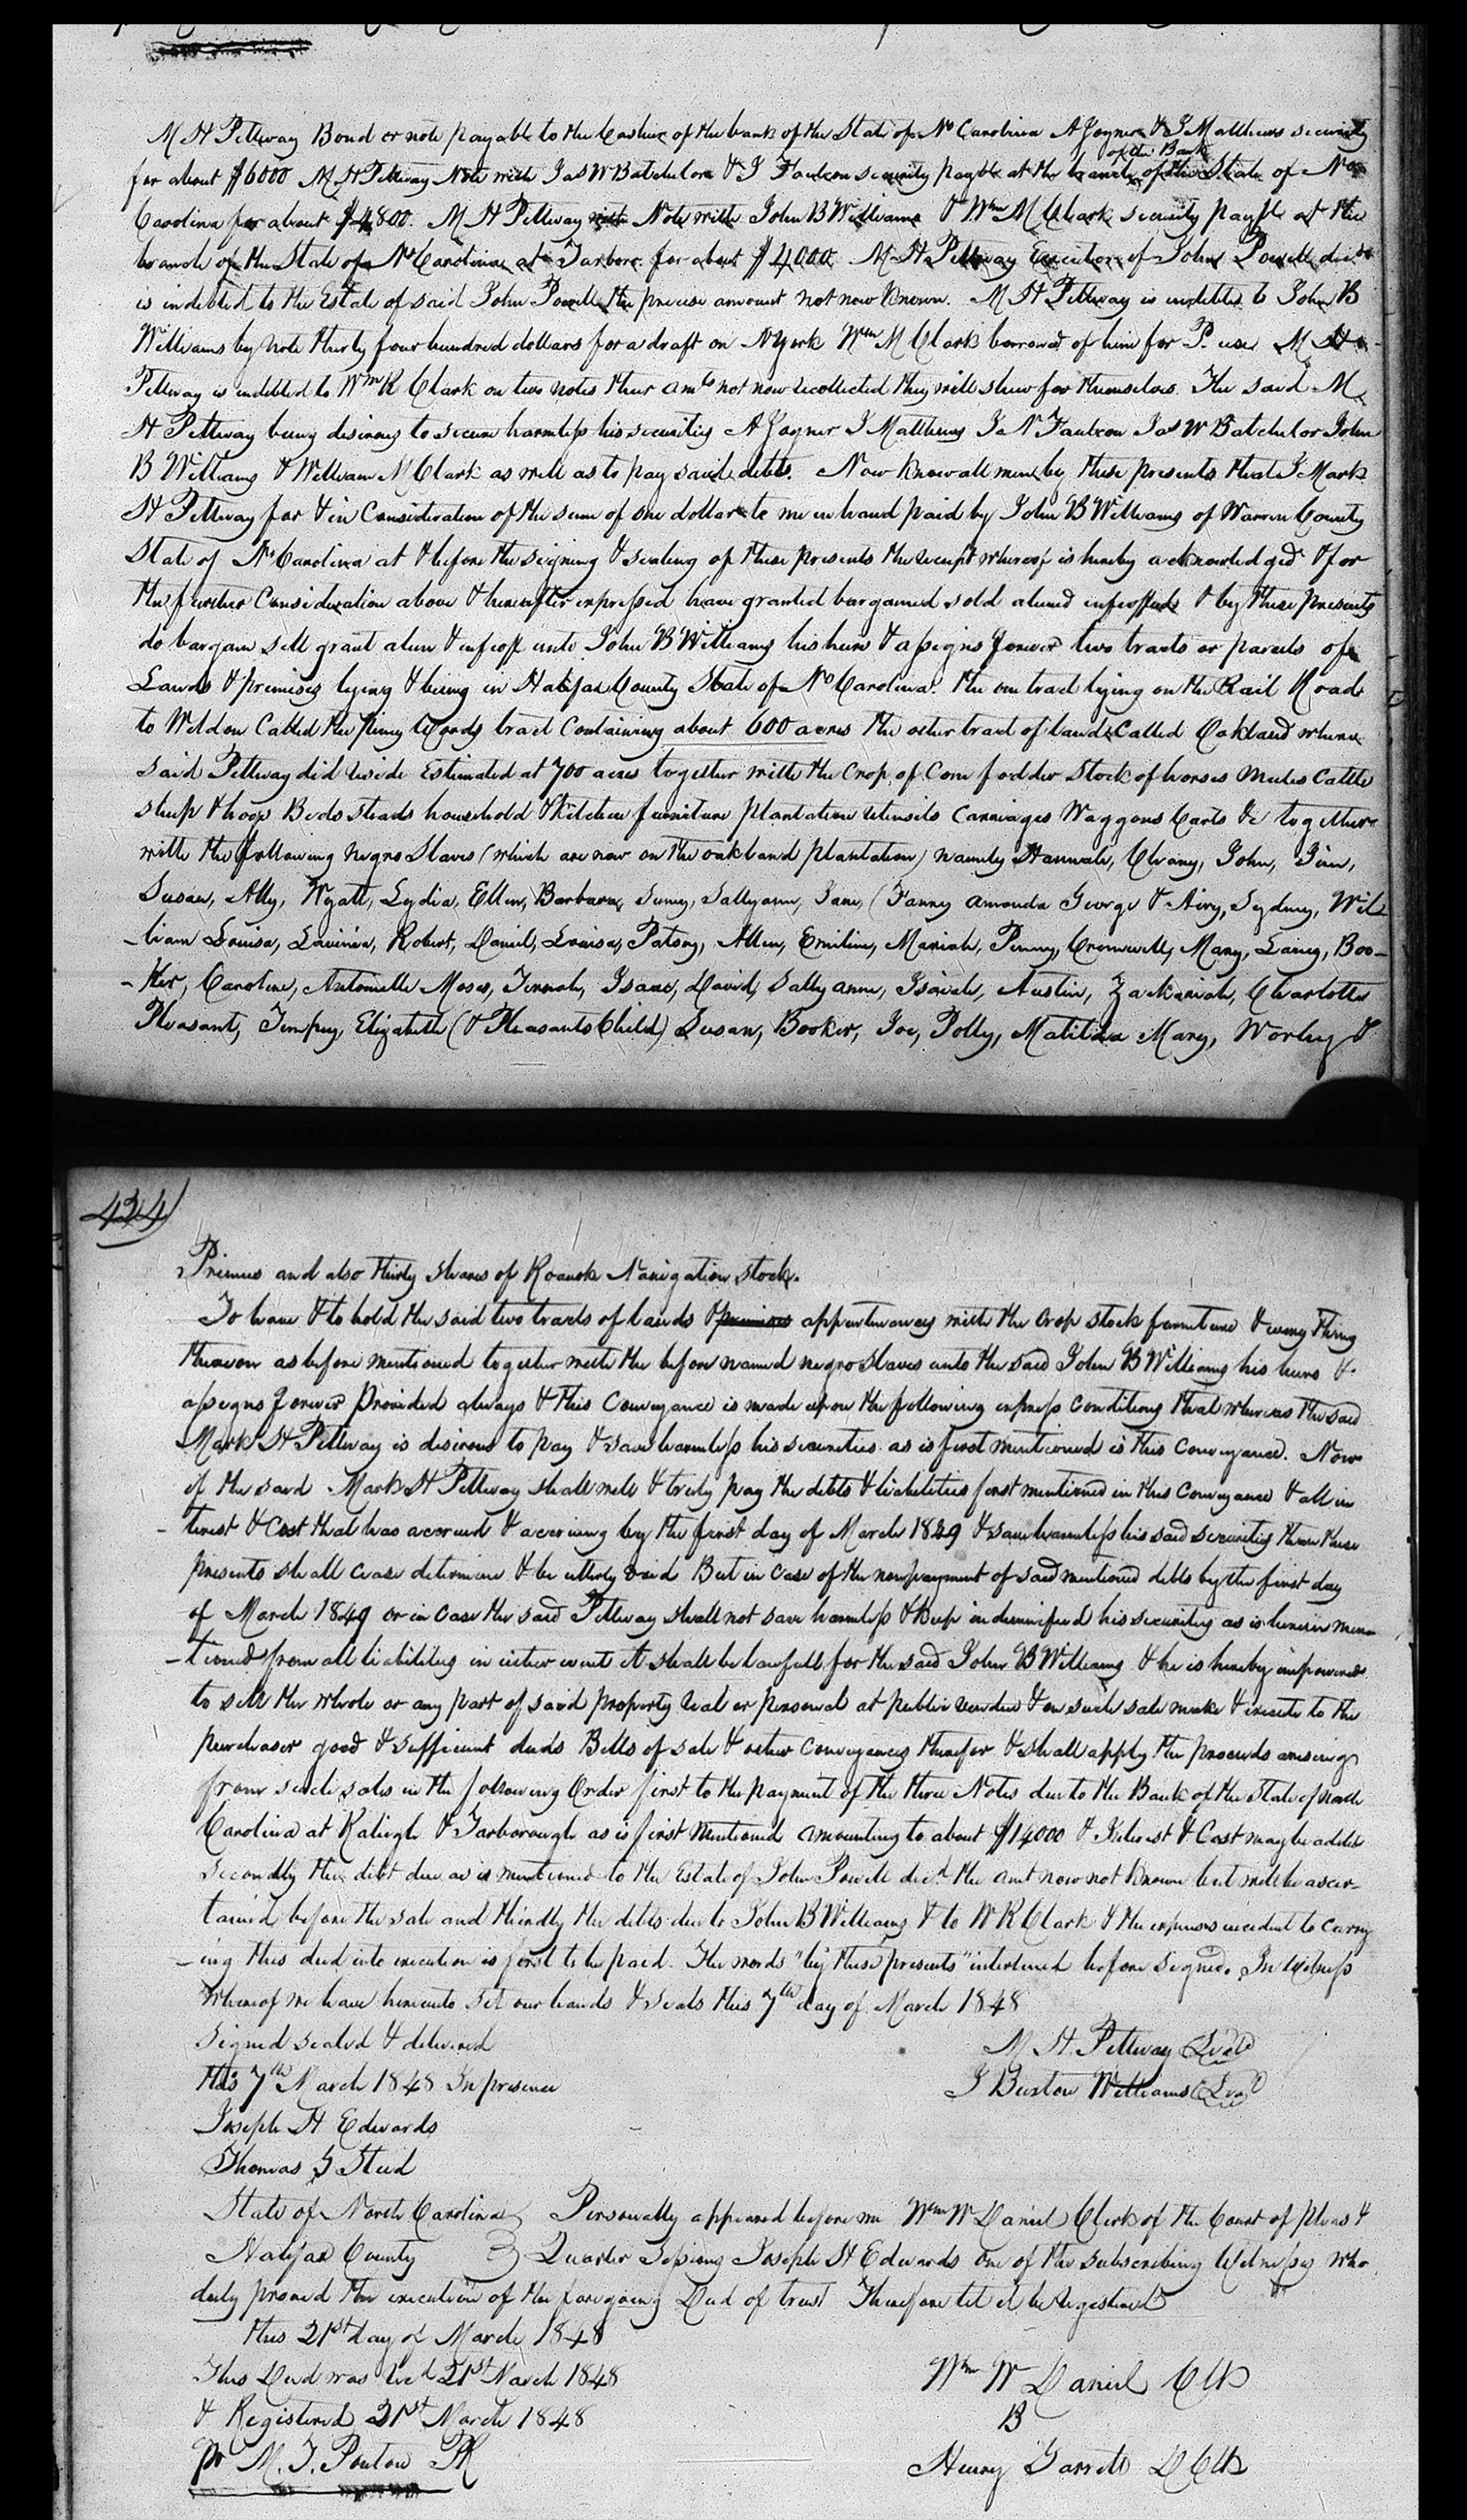 M H Pettway Bond or note payable to the Cashier of the bank of the State of No Carolina A Joyner & J Matthews security
for about $6000 M H Pettway Note with Jas W Batchelor & J Faulcon security payble at the branch of the Bank of the State of No
Carolina for about $4800. M H Pettway Note with John B Williams & Wm M Clark security payble at the
branch of the State of No Carolina at Tarboro for about $4000 M H Pettway Executor of John Powell decd
is indebted to the Estate of said John Powell the precise amount not now Known. M H Pettway is indebted to John B
Williams by note thirty four hundred dollars for a draft on N York Wm M Clark borrowed of him for P. use M H
Pettway is indebted to Wm R Clark on two notes their amts not now recollected they will shew for themselves. The said M
H Pettway being desirous to secure harmless his securities A Joyner J Matthews J N Faulcon Jas W Batchelor John
B Williams & William M Clark as well as to pay said debts. Now Know all men by these presents that I Mark
H Pettway for & in Consideration of the sum of one dollar to me in hand paid by John B Williams of Warren County
State of No Carolina at & before the signing & sealing of these presents the receipt whereof is hereby acknowledged & for
the further Consideration above & hereafter expressed have granted bargained sold aliened enfeoffed & by these presents
do bargain sell grant alien & enfeoff unto John B Williams his heirs & assigns forever two tracts or parcels of
Lands & premises lying & being in Halifax County State of No Carolina. the one tract lying on the Rail Road
to Weldon Called the piney Woods tract Containing about 600 acres the other tract of lands Called Oakland where
said Pettway did reside Estimated at 700 acres together with the Crop of Corn fodder Stock of horses Mules Cattle
sheep & hogs Beds steads household & Kitchen furniture plantation utensils Carriages Waggons Carts &c together
with the following negro Slaves (which are now on the oakland plantation) namely Hannah, Chany, John, Jim,
Susan, Ally, Wyatt, Lydia, Ellen, Barbara, Suny, Sallyann, Jane, (Fanny Amanda George & Airy, Sydney, Wil-
-liam Louisa, Lavinia, Robert, Daniel, Louisa, Patsey, Allen, Emiline, Mariah, Penny, Cromwell, Mary, Lainy, Boo-
-ker, Caroline, Antoinette Moses, Jennah, Isaac, David, Sally anne, Isaiah, Austin, Zackariah, Charlotte
Pleasant, Tempy, Elizabeth (& Pleasants Child) Susan, Booker, Joe, Polly, Matilda Mary, Worley &
434
Primus and also thirty shares of Roanoke Navigation stock.
To have & to hold the said two tracts of lands & premises appurtenances with the crop stock furniture & every thing
thereon as before mentioned together with the before named negro slaves unto the said John B Williams his heirs &
assigns forever Provided always & this Conveyance is made upon the following express conditions that whereas the said
Mark H Pettway is desirous to pay & save harmless his securities as is first mentioned is this conveyance. Now
if the said Mark H Pettway shall well & truly pay the debts & liabilities first mentioned in this Conveyance & all in
-terest & Cost that has accrued & accruing by the first day of March 1849 & save harmless his said securities then these
presents shall cease determine & be utterly void But in case of the nonpayment of said mentioned debts by the first day
of March 1849 or in case the said Pettway shall not save harmless & Keep indemnified his securities as is herein men
-tioned from all liabilities in either event it shall be lawfull for the said John B Williams & he is hereby impowered
to sell the whole or any part of said property real or personal at public vendue & on such sale make & execute to the
purchaser good & sufficient deeds Bills of sale & other conveyances therefor & shall apply the proceeds arising
from such sales in the following Order first to the payment of the three Notes due to the Bank of the State of North
Carolina at Raleigh & Tarborough as is first mentioned amounting to about $14000 & Interest & Cost may be added
secondly the debt due as is mentioned to the Estate of John Powell decd the amt now not Known but will be ascer-
tained before the sale and thirdly the debts due to John B Williams & to W R Clark & the expenses incident to carry
-ing this deed into execution is first to be paid. The words "by these presents" interlined before signed. In Witness
whereof we have hereunto set our hands & seals this 7th day of March 1848
Signed sealed & delivered M. H. Pettway Seal
this 7th March 1848 In presence J Buxton Williams Seal
Joseph H Edwards
Thomas J Steed
State of North Carolina } Personally appeared before me Wm W Daniel Clerk of the Court of pleas &
Halifax County } Quarter Sessions Joseph H Edwards one of the subscribing Witnesses who
duly proved the execution of the foregoing Deed of trust Therefore let it be Registered
this 21st day of March 1848
This Deed was recd 21st March 1848 Wm W Daniel Clk
& Registered 21st March 1848 B
pr M. T. Ponton PR Henry Garrett D Clk